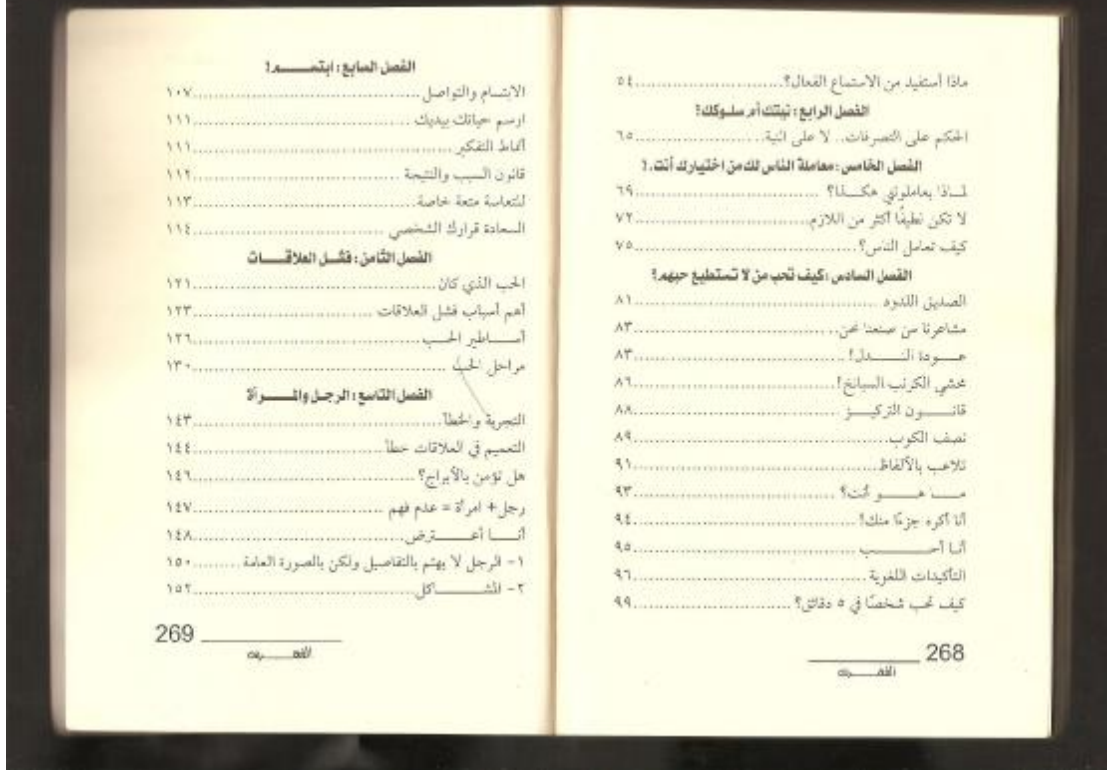 ماذا أستفيد من الاستماع الفعال؟ ٥٤
الفصل الرابع: نيتك أم سلوكك؟
الحكم على التصرفات.. لا على النية ٦٥
الفصل الخامس: معاملة الناس لك من اختيارك أنت.!
لماذا يعاملوني هكذا؟ ٦٩
لا تكن لطيفًا أكثر من اللازم ٧٢
كيف تعامل الناس؟ ٧٥
الفصل السادس: كيف تحب من لا تستطيع حبهم؟
الصديق اللدود ٨١
مشاعرنا من صنعنا نحن ٨٣
عودة النذل! ٨٣
محشي الكرنب السبانخ! ٨٦
قانون التركيز ٨٨
نصف الكوب ٨٩
تلاعب بالألفاظ ٩١
ما هو أنت؟ ٩٣
أنا أكره جزءًا منك! ٩٤
أنا أحب ٩٥
التأكيدات اللغوية ٩٦
كيف تحب شخصًا في ٥ دقائق؟ ٩٩
268
الفهرس
الفصل السابع: ابتسم!
الابتسام والتواصل ١٠٧
ارسم حياتك بيديك ١١١
أنماط التفكير ١١١
قانون السبب والنتيجة ١١٢
للتعاسة متعة خاصة ١١٣
السعادة قرارك الشخصي ١١٤
الفصل الثامن: فشل العلاقات
الحب الذي كان ١٢١
أهم أسباب فشل العلاقات ١٢٣
أساطير الحب ١٢٦
مراحل الحب ١٣٠
الفصل التاسع: الرجل والمرأة
التجربة والخطأ ١٤٣
التعميم في العلاقات خطأ ١٤٤
هل تؤمن بالأبراج؟ ١٤٦
رجل + امرأة = عدم فهم ١٤٧
أنا أعترض ١٤٨
١- الرجل لا يهتم بالتفاصيل ولكن بالصورة العامة ١٥٠
٢- المشاكل ١٥٢
269
الفهرس